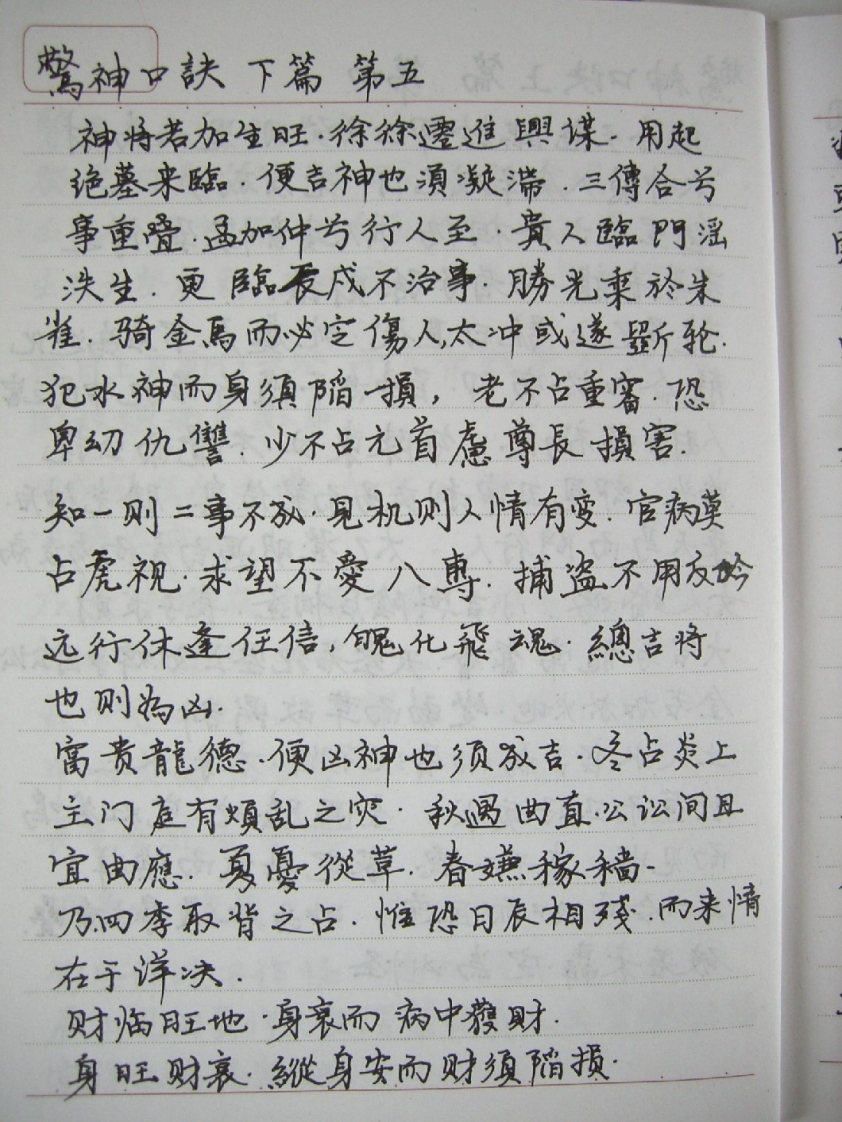 驚神口訣 下篇 第五
神将若加生旺.徐徐遷進興谋.用起
绝墓来臨.便吉神也須凝滞.三傳合兮
事重疊.孟加仲兮行人至.貴人臨門滛
泆生.更臨辰戍不治事.勝光乘於朱
雀.骑金馬而必定傷人,太冲或遂斵轮.
犯水神而身須陷損,老不占重審.恐
卑幼仇讐.少不占元首慮尊長損害.
知一则二事不成.見机则人情有变.官病莫
占虎视.求望不愛八專.捕盗不用反吟
远行休逢任信,魄化飛魂.總吉将
也则為凶.
富贵龍德.便凶神也须成吉.冬占炎上
主门庭有煩乱之灾.秋遇曲直.公讼间且
宜曲應.夏憂從革.春嫌稼穡.
乃四季取背之占.惟恐日辰相残.而来情
在于详决.
财临旺地.身衰而病中獲财.
身旺财衰.縱身安而财须陷損.